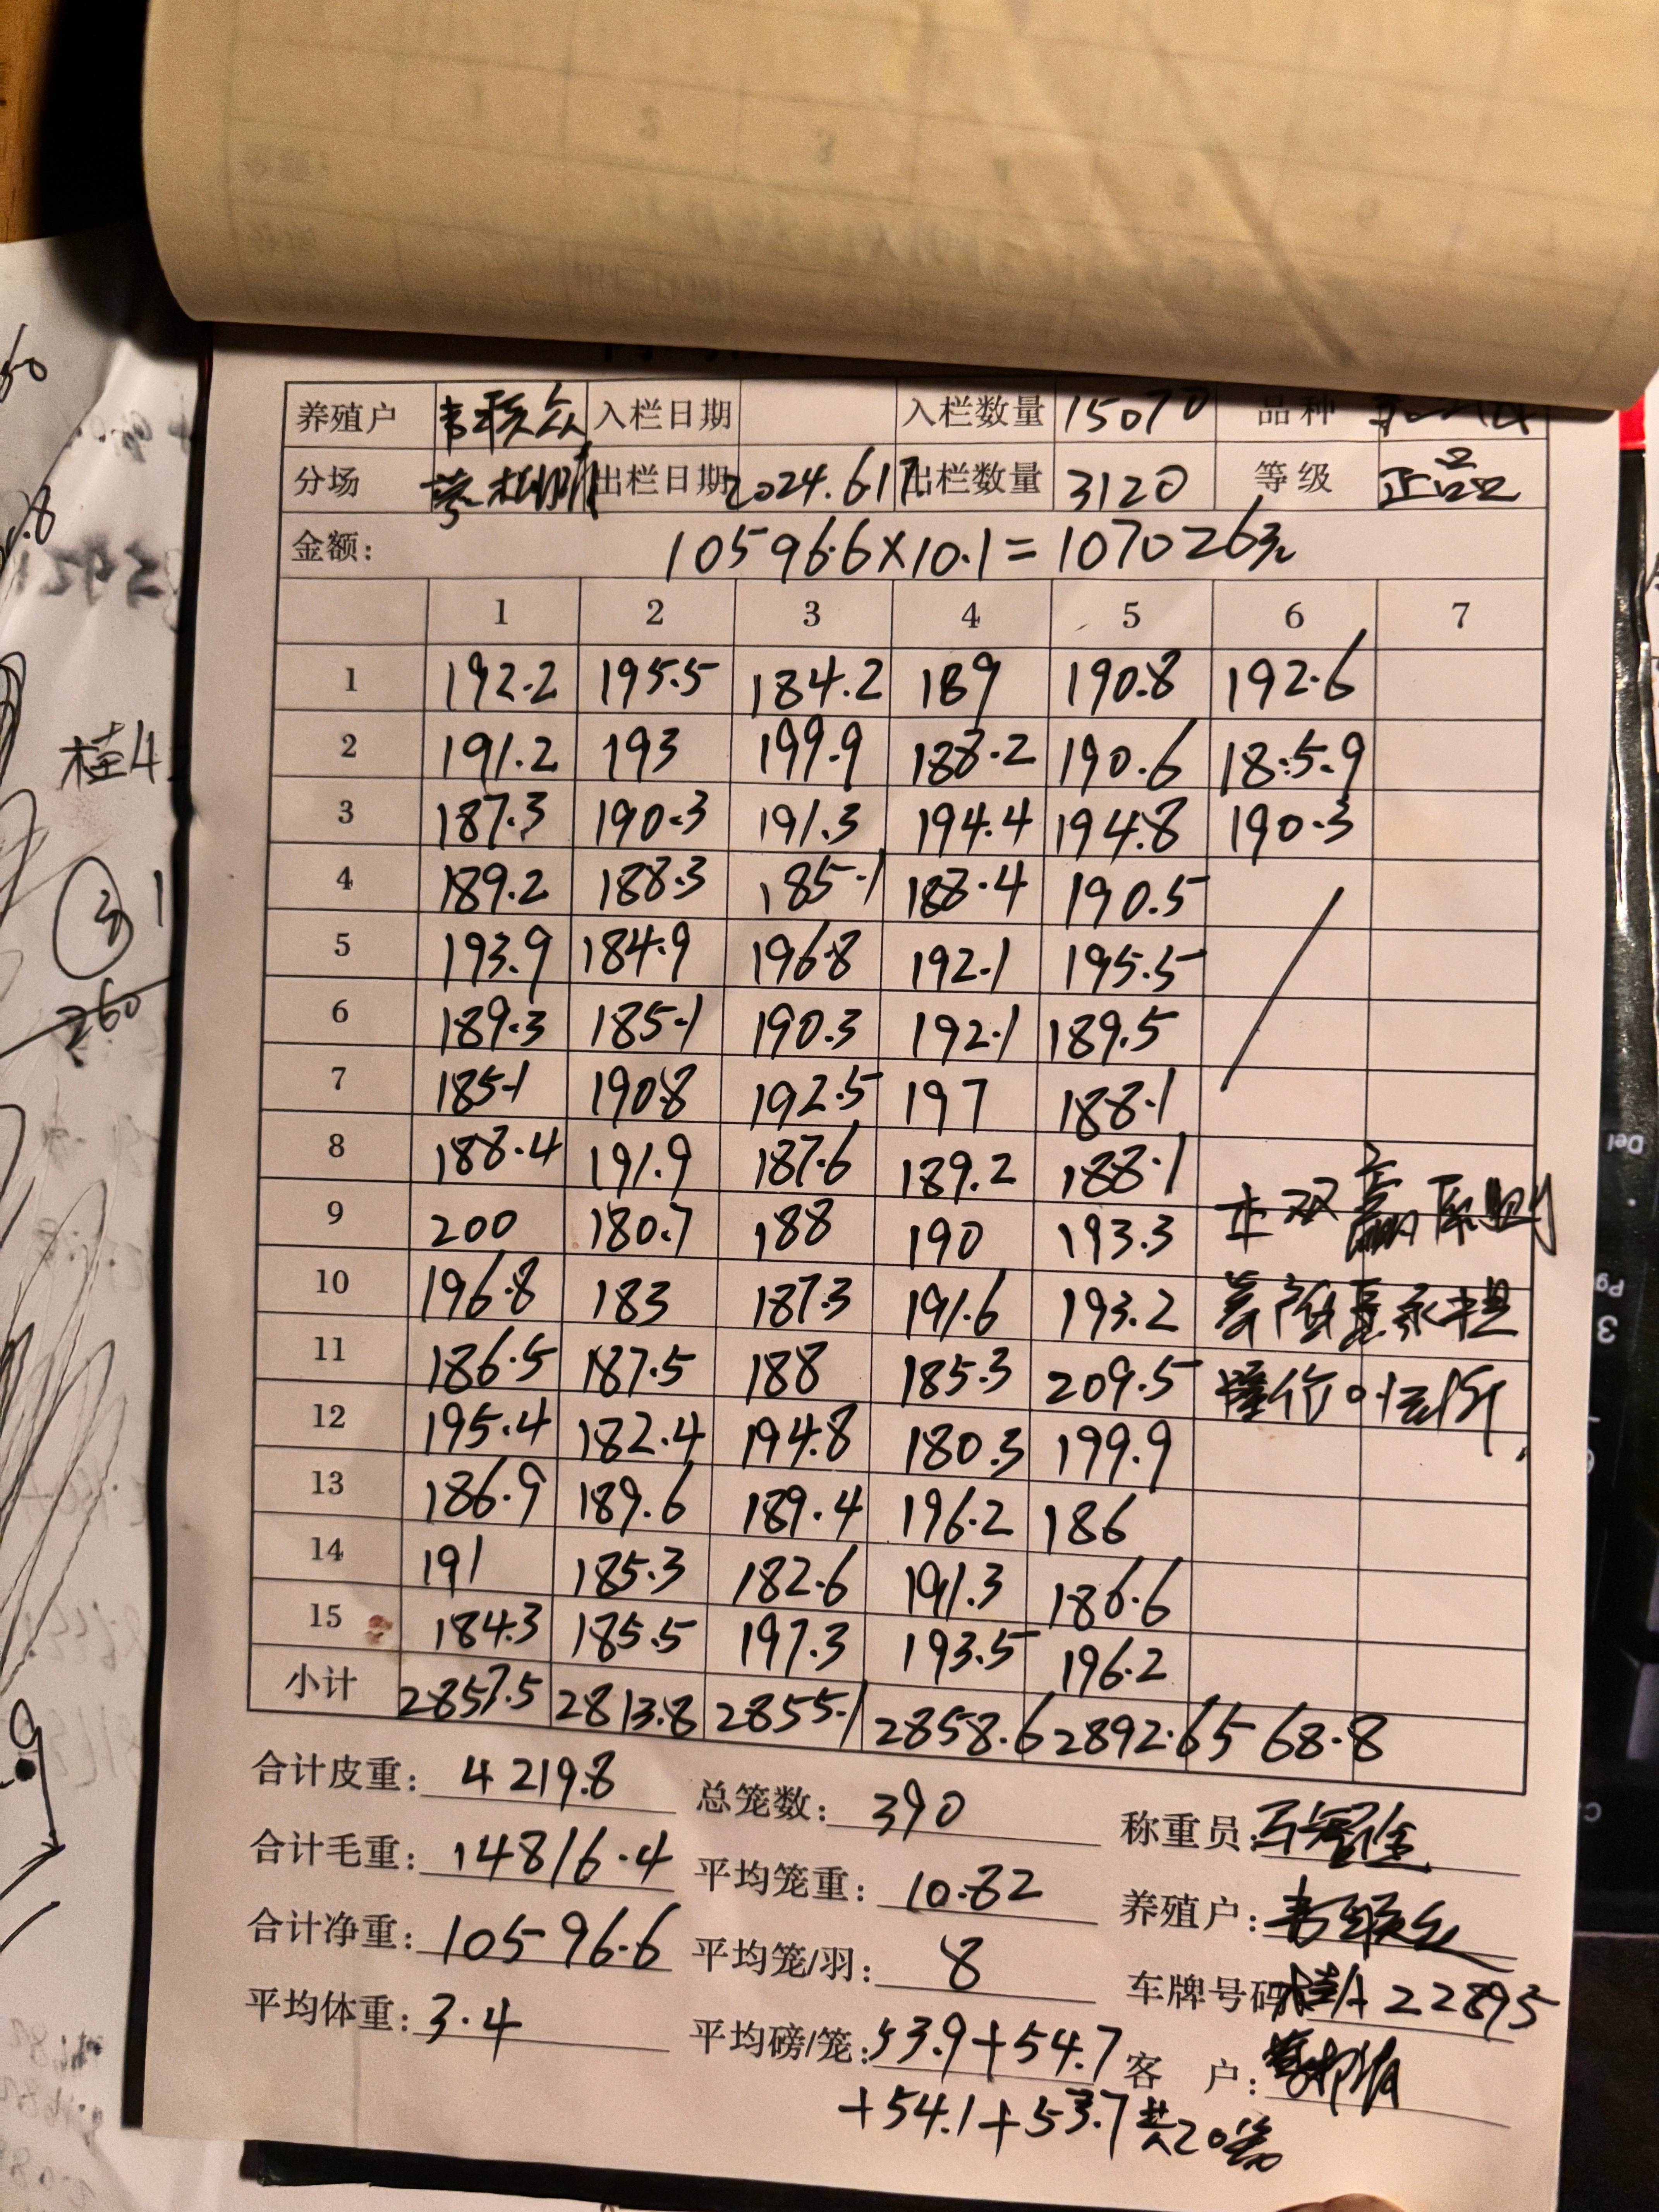 养殖户 韦联众 入栏日期 入栏数量 15070 品种
分场 出栏日期 2024.6.17 出栏数量 3120 等级 正品
金额： 10596.6×10.1=107026元
1 2 3 4 5 6 7
1 192.2 195.5 184.2 189 190.8 192.6
2 191.2 193 199.9 188.2 190.6 185.9
3 187.3 190.3 191.3 194.4 194.8 190.3
4 189.2 188.3 185.1 188.4 190.5
5 193.9 184.9 196.8 192.1 195.5
6 189.3 185.1 190.3 192.1 189.5
7 185.1 190.8 192.5 197 188.1
8 188.4 191.9 187.6 189.2 188.1
9 200 180.7 188 190 193.3 本双赢原则
10 196.8 183 187.3 191.6 193.2
11 186.5 187.5 188 185.3 209.5
12 195.4 182.4 194.8 180.3 199.9
13 186.9 189.6 189.4 196.2 186
14 191 185.3 182.6 191.3 186.6
15 184.3 185.5 197.3 193.5 196.2
小计 2857.5 2813.8 2855.1 2858.6 2892.6 568.8
合计皮重： 4219.8 总笼数： 390 称重员：
合计毛重： 14816.4 平均笼重： 10.82 养殖户： 韦联众
合计净重： 10596.6 平均笼/羽： 8 车牌号码 桂A22895
平均体重： 3.4 平均磅/笼： 53.9+54.7 客 户：
+54.1+53.7共20笼
桂4
260
Del